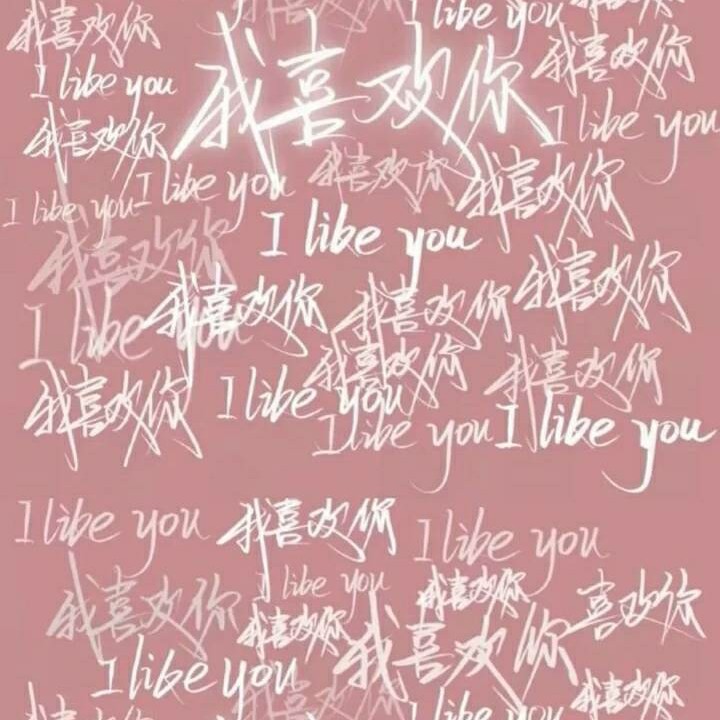 I like you
我喜欢你
我喜欢你
我喜欢你
I like you
我喜欢你
I like you
我喜欢你
我喜欢你
I like you
我喜欢你
I like you
I like you
我喜欢你
我喜欢你
我喜欢你
我喜欢你
I like you
我喜欢你
我喜欢你
我喜欢你
I like you
I like you
I like you
I like you
我喜欢你
I like you
I like you
我喜欢你
我喜欢你
喜欢你
我喜欢你
我喜欢你
I like you
我喜欢你
I like you